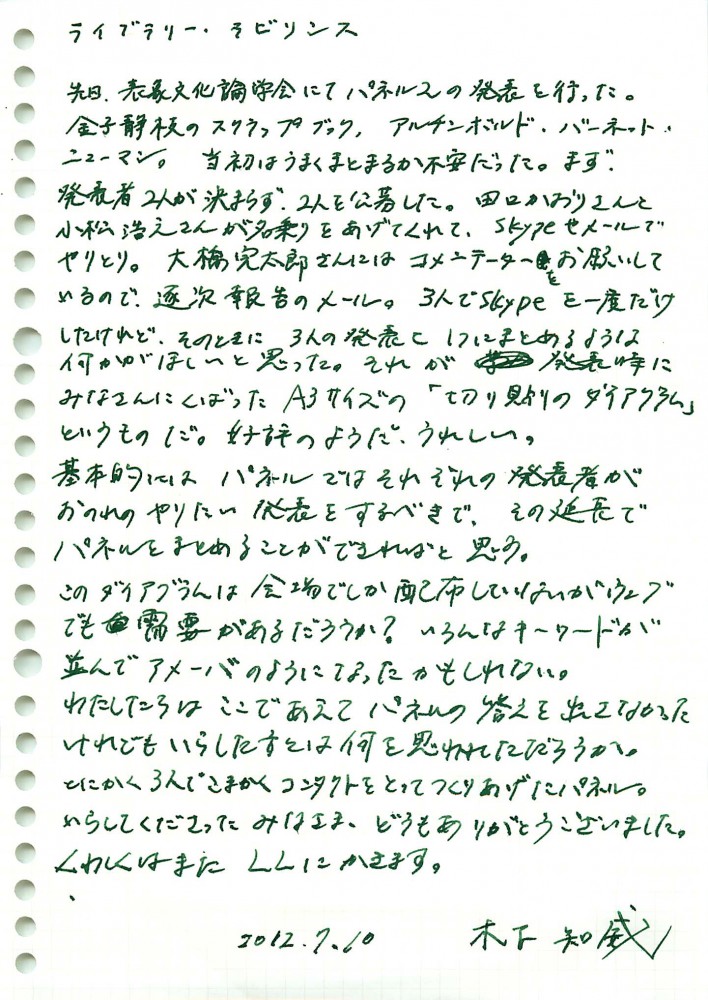 ライブラリー・ラビリンス
先日、表象文化論学会にてパネル2の発表を行った。
金子静枝のスクラップブック、アルチンボルド・バーネット・
ニューマン。当初はうまくまとまるか不安だった。まず、
発表者2人が決まらず、2人を公募した。田口かおりさんと
小松浩之さんが名乗りをあげてくれて、Skypeやメールで
やりとり。大橋完太郎さんにはコメンテーターをお願いして
いるので、逐次報告のメール。3人でSkypeを一度だけ
したけれど、そのときに3人の発表を1つにまとめるような
何かがほしいと思った。それが発表時に
みなさんにくばったA3サイズの「切り貼りのダイアグラム」
というものだ。好評のようだ、うれしい。
基本的にはパネルではそれぞれの発表者が
おのれのやりたい発表をするべきで、その延長で
パネルをまとめることができればと思う。
このダイアグラムは会場でしか配布していないがウェブ
でも需要があるだろうか?いろんなキーワードが
並んでアメーバのようになったかもしれない。
わたしたちはここであえてパネルの答えを出さなかった
けれどもいらした方々は何を思われただろうか。
とにかく3人でこまかくコンタクトをとってつくりあげたパネル。
いらしてくださったみなさま、どうもありがとうございました。
くわしくはまたLLにかきます。
2012.7.10 木下知威